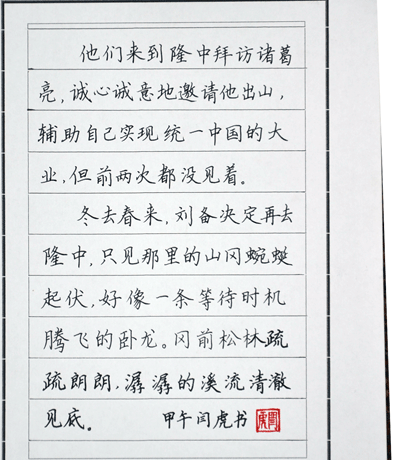 他们来到隆中拜访诸葛
亮,诚心诚意地邀请他出山,
辅助自己实现统一中国的大
业,但前两次都没见着。
冬去春来,刘备决定再去
隆中,只见那里的山冈蜿蜒
起伏,好像一条等待时机
腾飞的卧龙。冈前松林疏
疏朗朗,潺潺的溪流清澈
见底。 甲午闫虎书